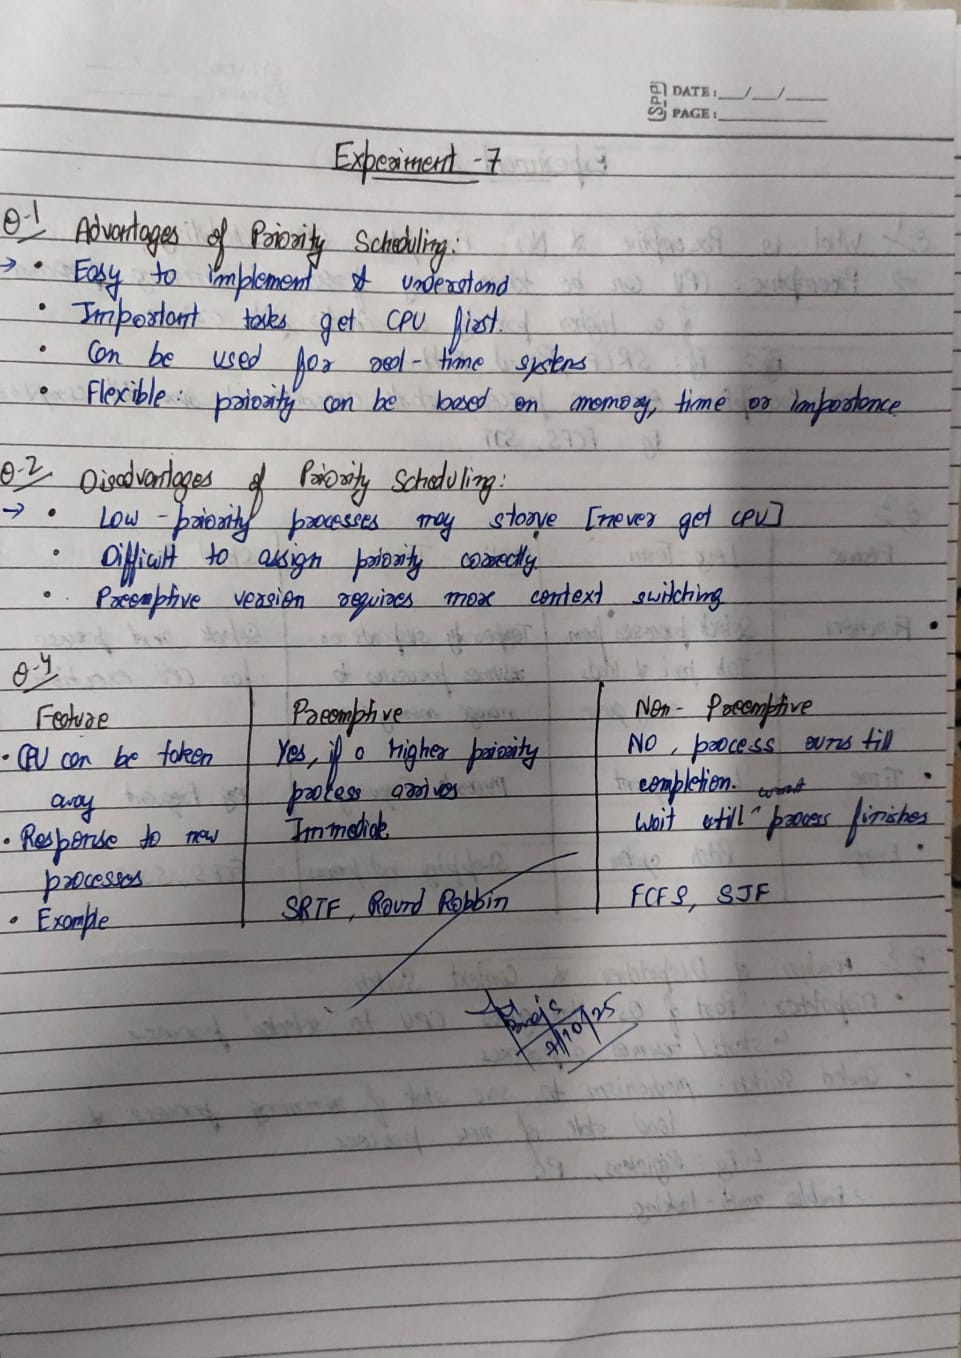 SPP DATE: __/__/____
PAGE: ________
Experiment - 7
Q-1 Advantages of Priority Scheduling:
→ • Easy to implement & understand
• Important tasks get CPU first.
• Can be used for real-time systems
• Flexible: priority can be based on memory, time or importance
Q-2 Disadvantages of Priority Scheduling:
→ • Low-priority processes may starve [never get CPU]
• Difficult to assign priority correctly.
• Preemptive version requires more context switching
Q-4
Feature Preemptive Non-Preemptive
• CPU can be taken away Yes, if a higher priority process arrives NO, process runs till completion.
• Response to new processes Immediate Wait still process finishes
• Example SRTF, Round Robbin FCFS, SJF